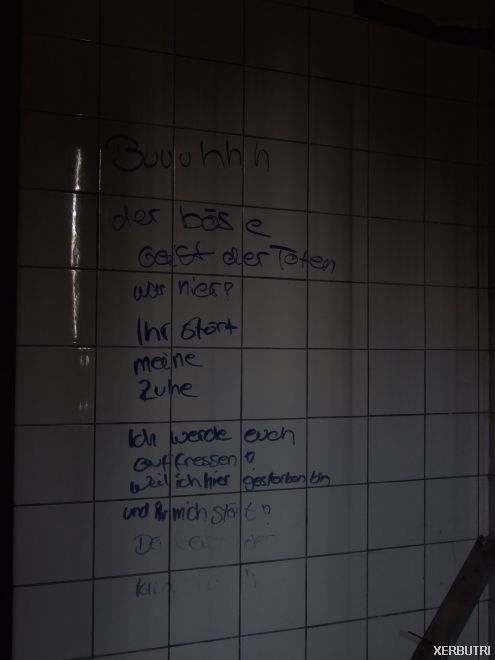 Buuuhhh
der böse
Geist der Toten
war hier!
Ihr stört
meine
Ruhe
Ich werde euch
auffressen!
weil ich hier gestorben bin
und ihr mich stört!
XERBUTRI